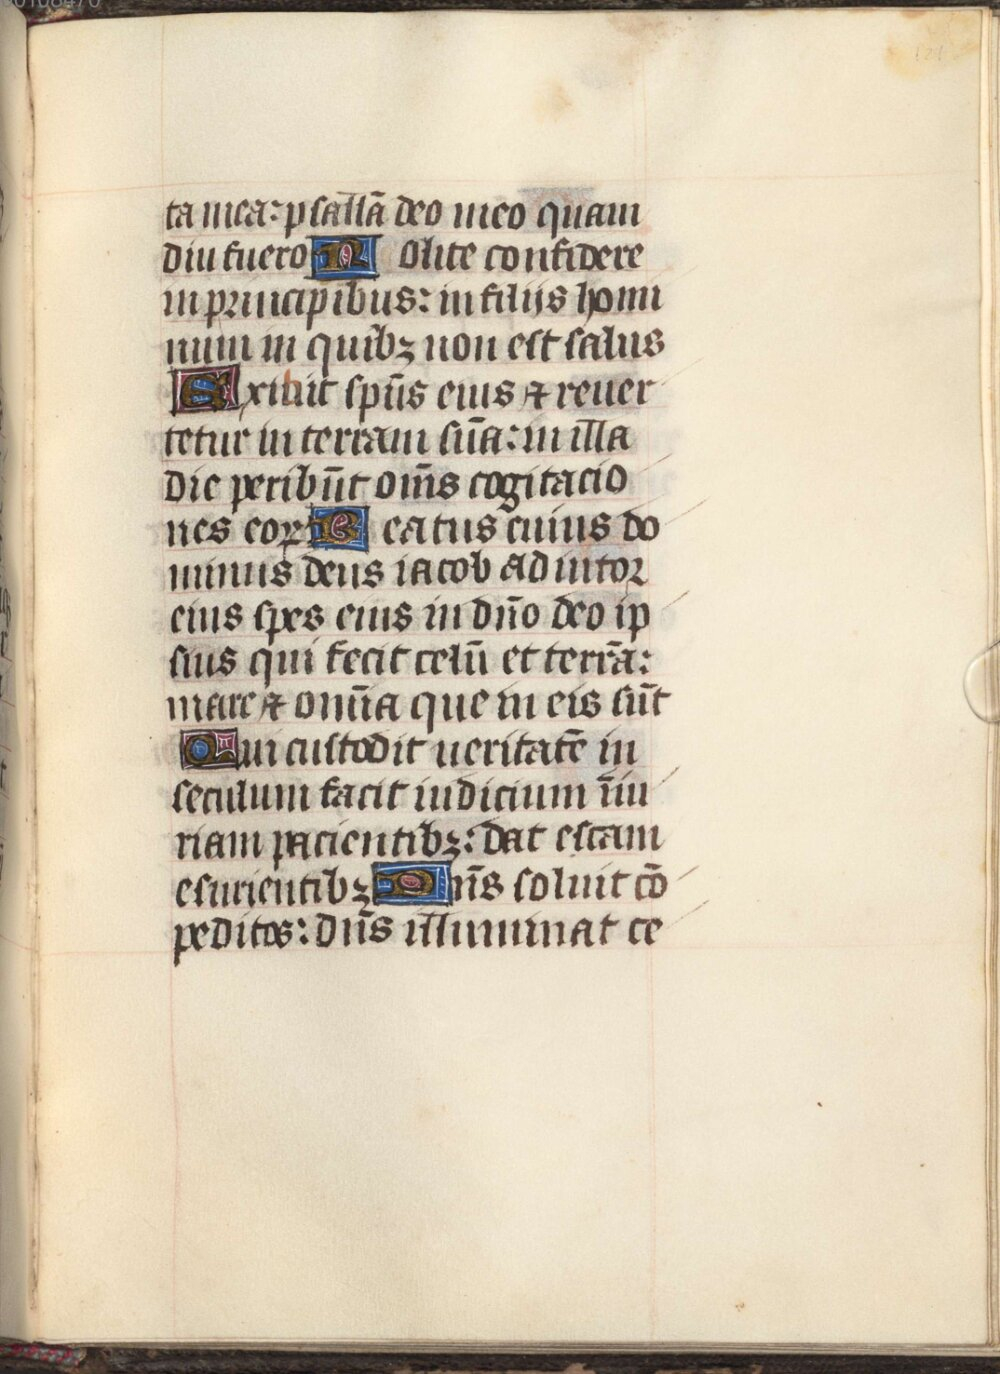 ta mea: psallā deo meo quam
diu fuero Nolite confidere
in principibus: in filijs homi
num in quibꝫ non est salus
Exibit spūs eius ⁊ reuer
tetur in terram suā: in illa
die peribūt om̄s cogitacio
nes eoꝝ Beatus cuius do
minus deus iacob adiutor
eius spes eius in dn̄o deo ip
sius qui fecit celū et terrā:
mare ⁊ omīa que in eis sūt
Qui custodit ueritatē in
seculum facit iudicium īiu
riam pacientibꝫ: dat escam
esurientibꝫ Dn̄s soluit cō
peditos: dn̄s illuminat ce
121